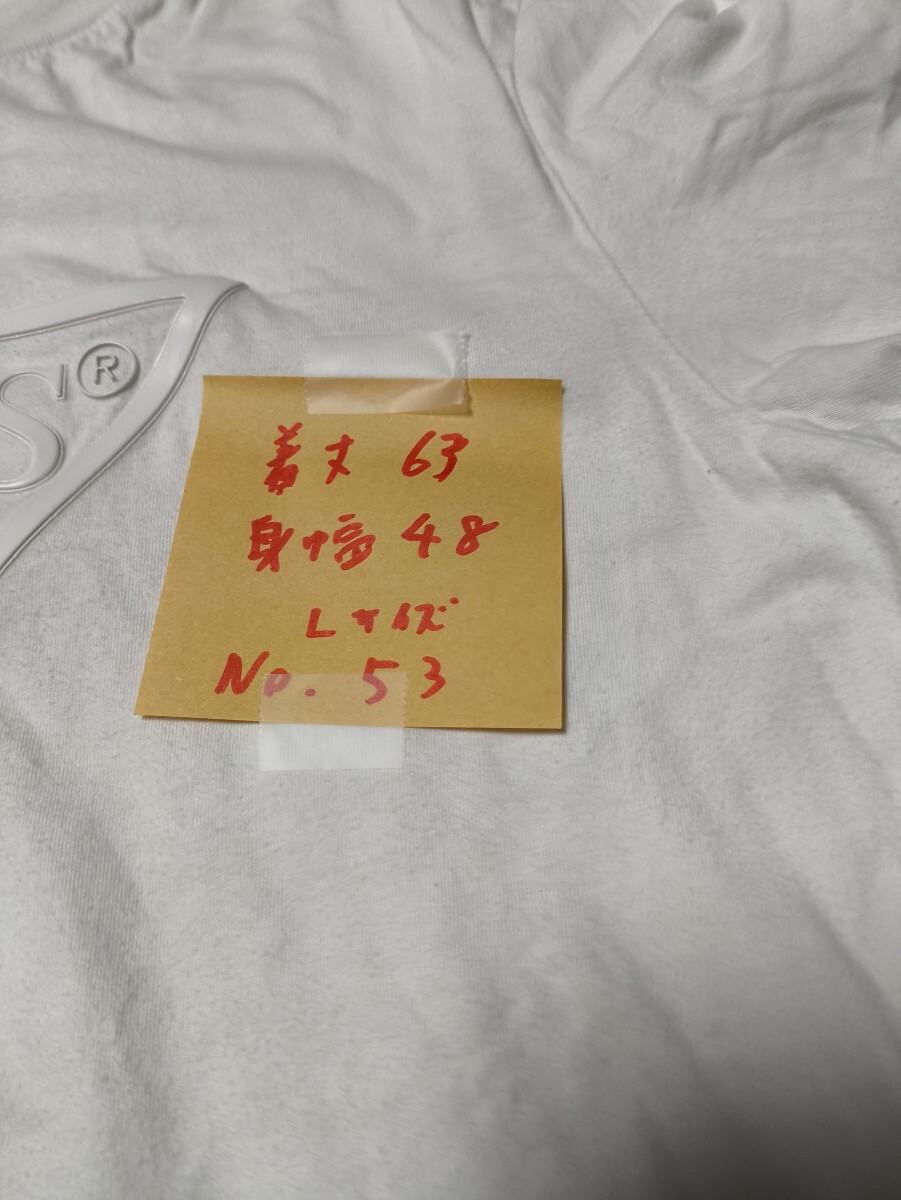 S®
着丈 63
身幅 48
Lサイズ
No. 53